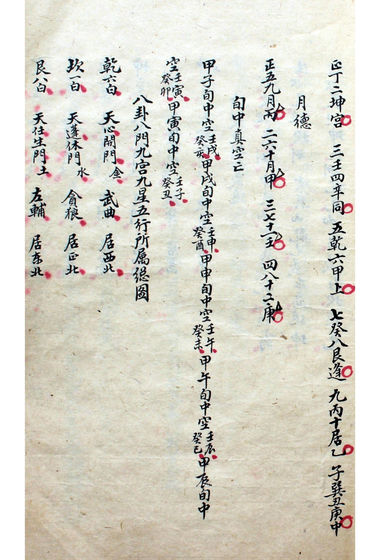 正丁二坤宫 三壬四辛同 五乾六甲上 七癸八艮逢 九丙十居乙 子巽丑庚中
月德
正五九月丙 二六十月甲 三七十一壬 四八十二庚
旬中真空亡
甲子旬中空壬戌癸亥 甲戌旬中空壬申癸酉 甲申旬中空壬午癸未 甲午旬中空壬辰癸巳 甲辰旬中
空壬寅癸卯 甲寅旬中空壬子癸丑
八卦八門九宫九星五行所属總圖
乾六白 天心開門金 武曲 居西北
坎一白 天蓬休門水 貪狼 居正北
艮八白 天任生門土 左輔 居东北